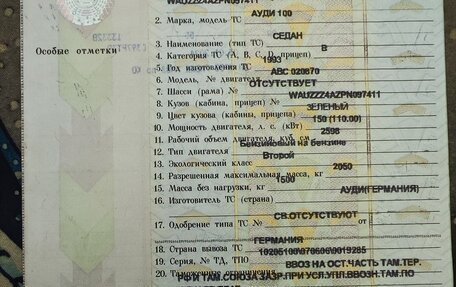 WAUZZZ4AZPN097411
2. Марка, модель ТС АУДИ 100
СЕДАН
Особые отметки
3. Наименование (тип ТС)
4. Категория ТС (А, В, С, D, прицеп) В
5. Год изготовления ТС 1993
6. Модель, № двигателя АВС 020870
7. Шасси (рама) № ОТСУТСТВУЕТ
8. Кузов (кабина, прицеп) № WAUZZZ4AZPN097411
9. Цвет кузова (кабины, прицепа) ЗЕЛЕНЫЙ
10. Мощность двигателя, л. с. (кВт) 150 (110.00)
11. Рабочий объем двигателя, куб. см 2598
12. Тип двигателя Бензиновый на бензине
13. Экологический класс Второй
14. Разрешенная максимальная масса, кг 2050
15. Масса без нагрузки, кг 1500
16. Изготовитель ТС (страна) АУДИ(ГЕРМАНИЯ)
17. Одобрение типа ТС № СВ.ОТСУТСТВУЮТ от
18. Страна вывоза ТС ГЕРМАНИЯ
19. Серия, № ТД, ТПО 10205100\070606\0019285
20. Таможенные ограничения ВВОЗ НА ОСТ.ЧАСТЬ ТАМ.ТЕР.
РФИ ТАМ.СОЮЗА ЗАЗР.ПРИ УСЛ.УПЛ.ВВОЗН.ТАМ.ПО